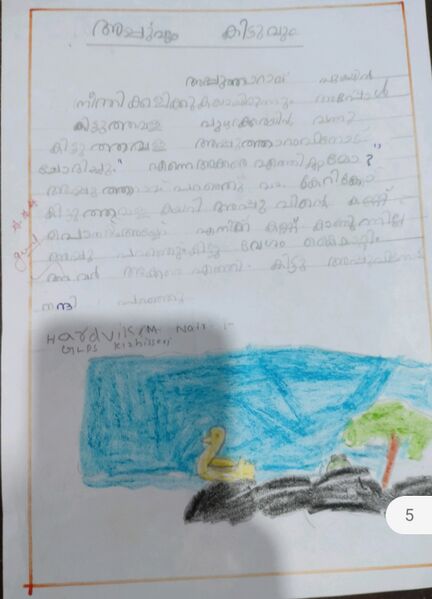 അപ്പുവും കിട്ടുവും
അപ്പുത്താറാവ് പുഴയിൽ
നീന്തിക്കളിക്കുകയായിരുന്നു. അപ്പോൾ
കിട്ടുത്തവള പുഴക്കരയിൽ വന്നു
കിട്ടുത്തവള അപ്പുത്താറാവിനോട്
ചോദിച്ചു." എന്നെ അക്കരെ എത്തിക്കുമോ?"
അപ്പുത്താറാവ് പറഞ്ഞു വാ കേറിക്കോ
കിട്ടുത്തവള കയറി അപ്പുവിന്റെ കണ്ണ്
പൊത്തി. അയ്യോ എനിക്ക് കണ്ണ് കാണുന്നില്ല
അപ്പു പറഞ്ഞു. കിട്ടു വേഗം കൈമാറ്റി.
അവർ അക്കരെ എത്തി. കിട്ടു അപ്പുവിനോട്
നന്ദി പറഞ്ഞു.
good
Hardvik.M. Nair
GLPS Kizhisseri
5